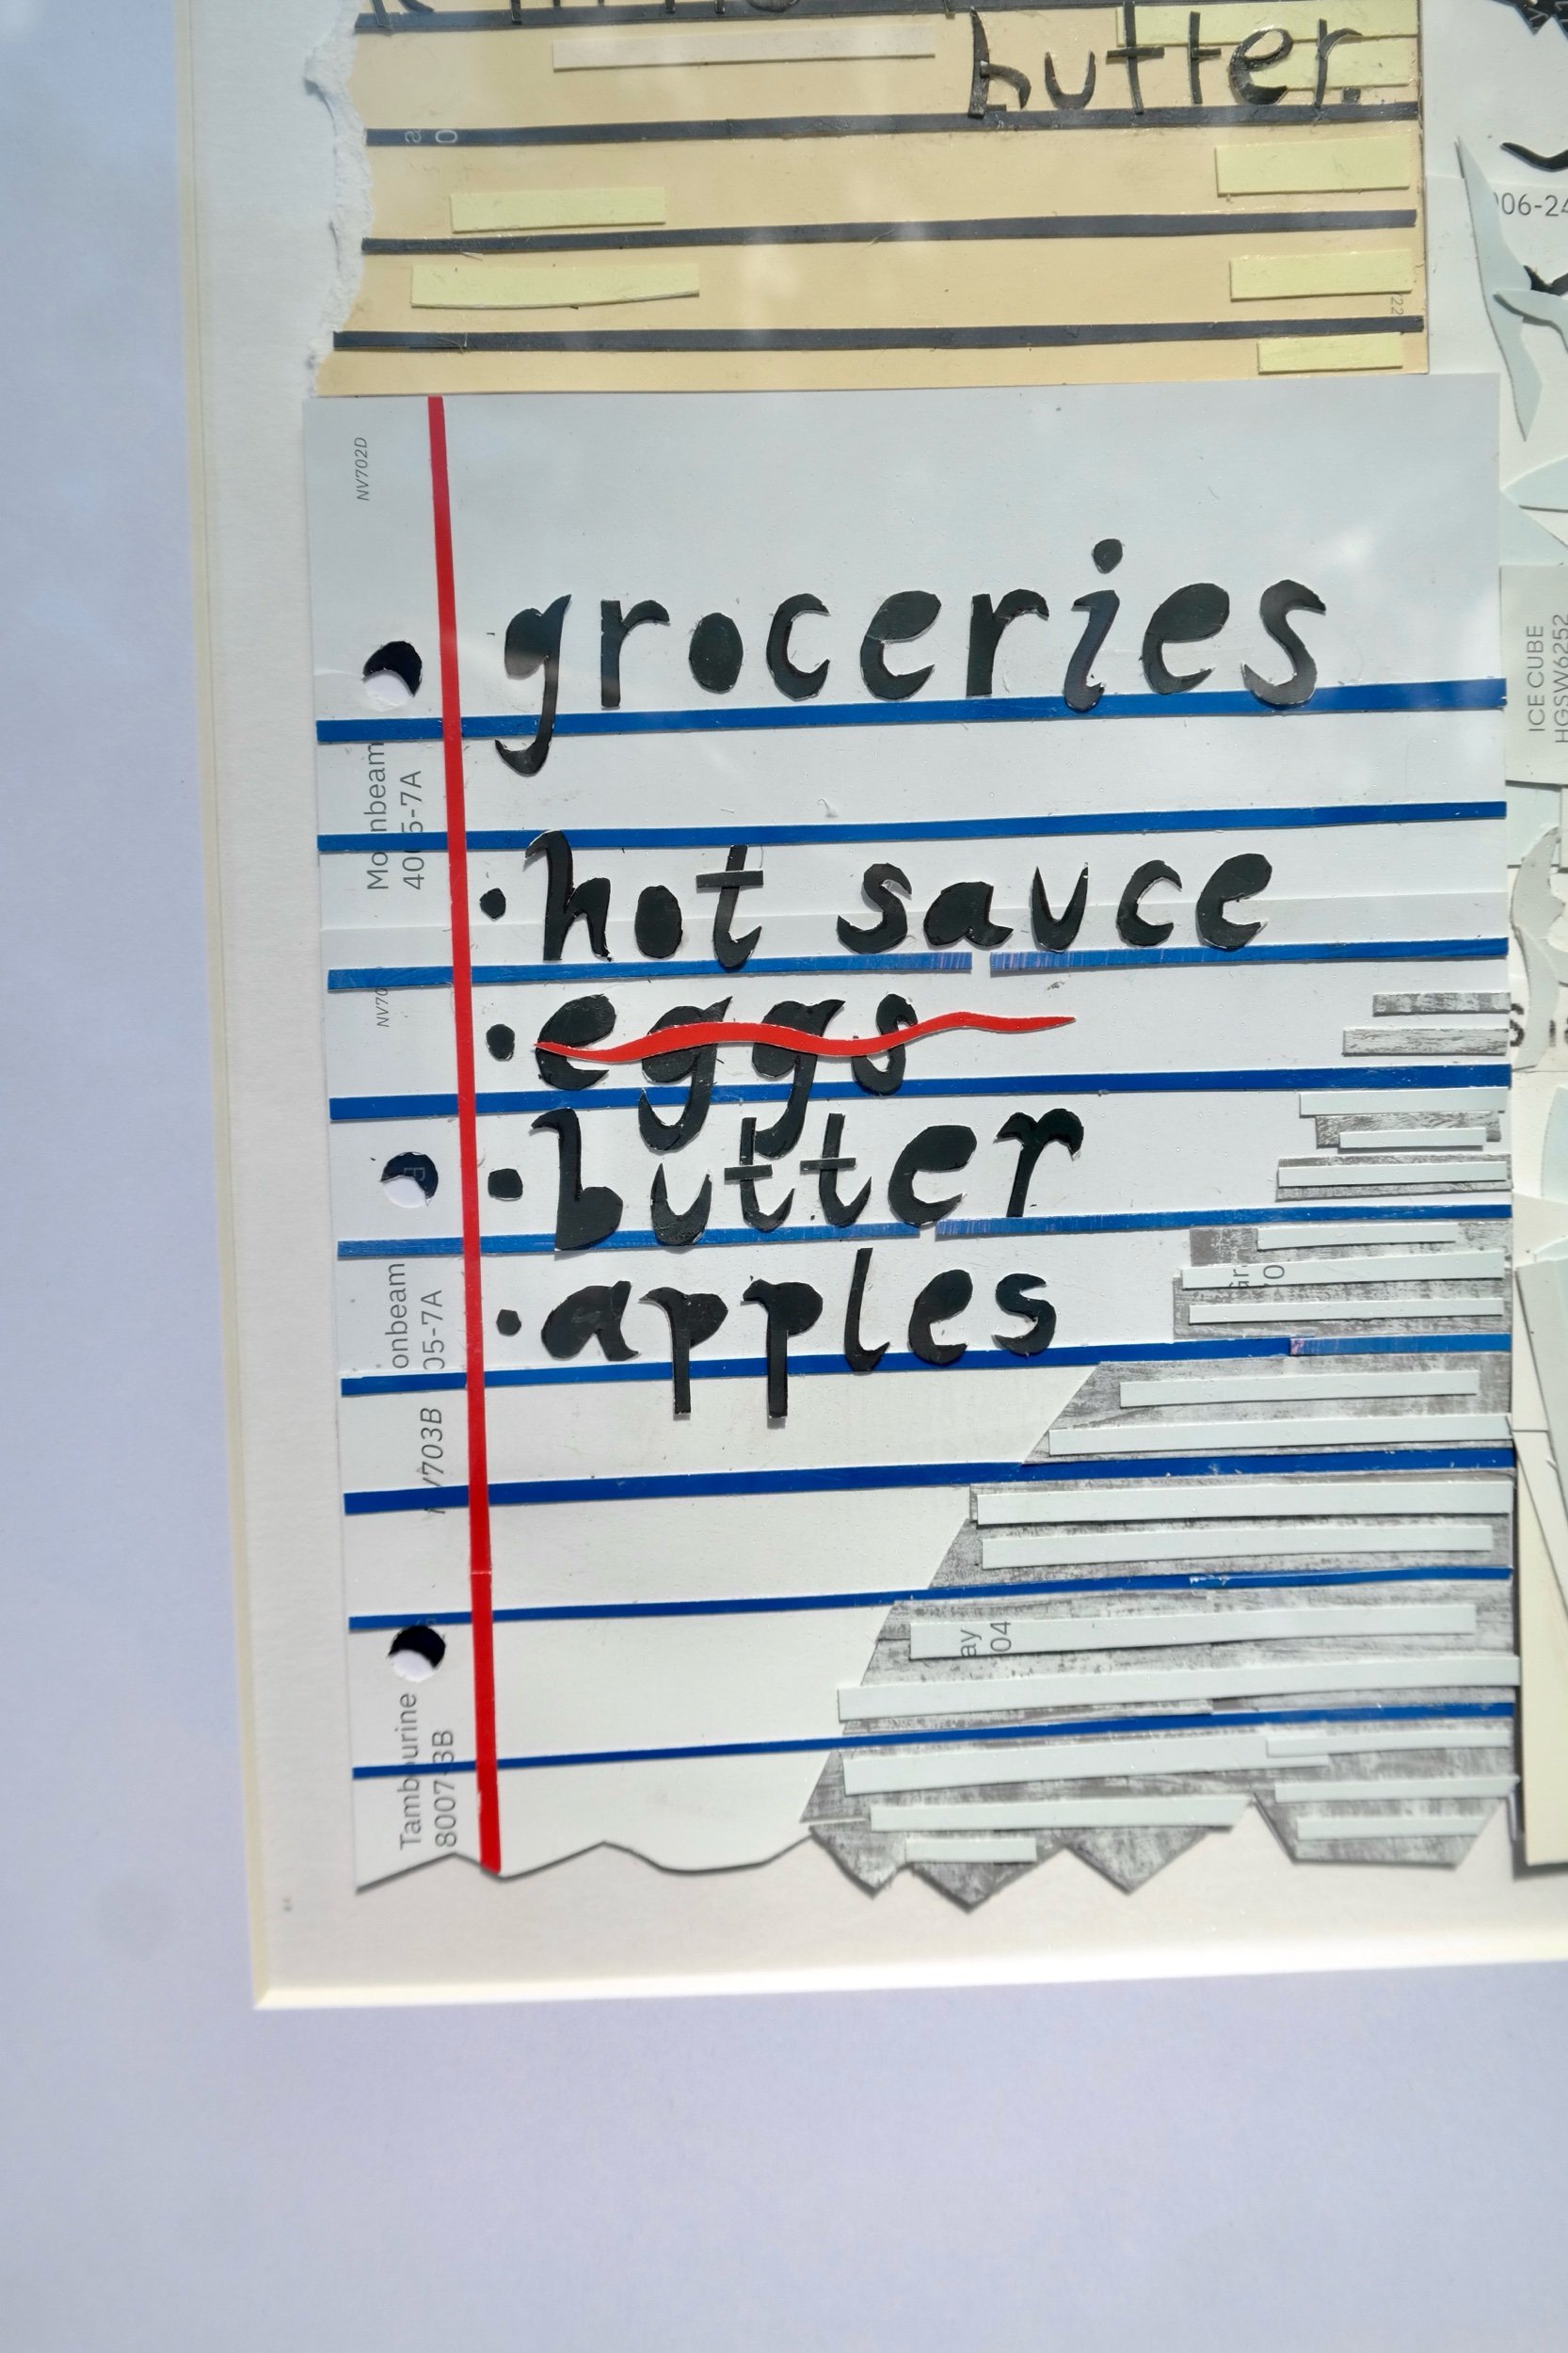 butter
groceries
• hot sauce
• eggs
• butter
• apples
NV702D
Moonbeam
4005-7A
NV70
onbeam
05-7A
V703B
Tambourine
8007-3B
ay
04
006-24
22
ICE CUBE
HGSW6252